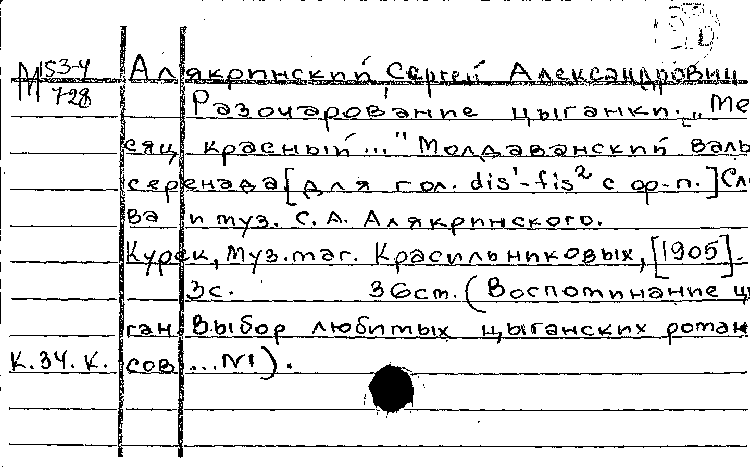 М 53-4
728
Алякринский Сергей Александрович
Разочарование цыганки. „Ме
сяц красный..." Молдаванский валь
серенада [для гол. dis¹-fis² с ф-п.] Сл
ва и муз. С. А. Алякринского.
Курск, Муз. маг. Красильниковых, [1905].
3с. 36см. (Воспоминание цы
ган. Выбор любимых цыганских роман
К. 34. К. сов ... №1).